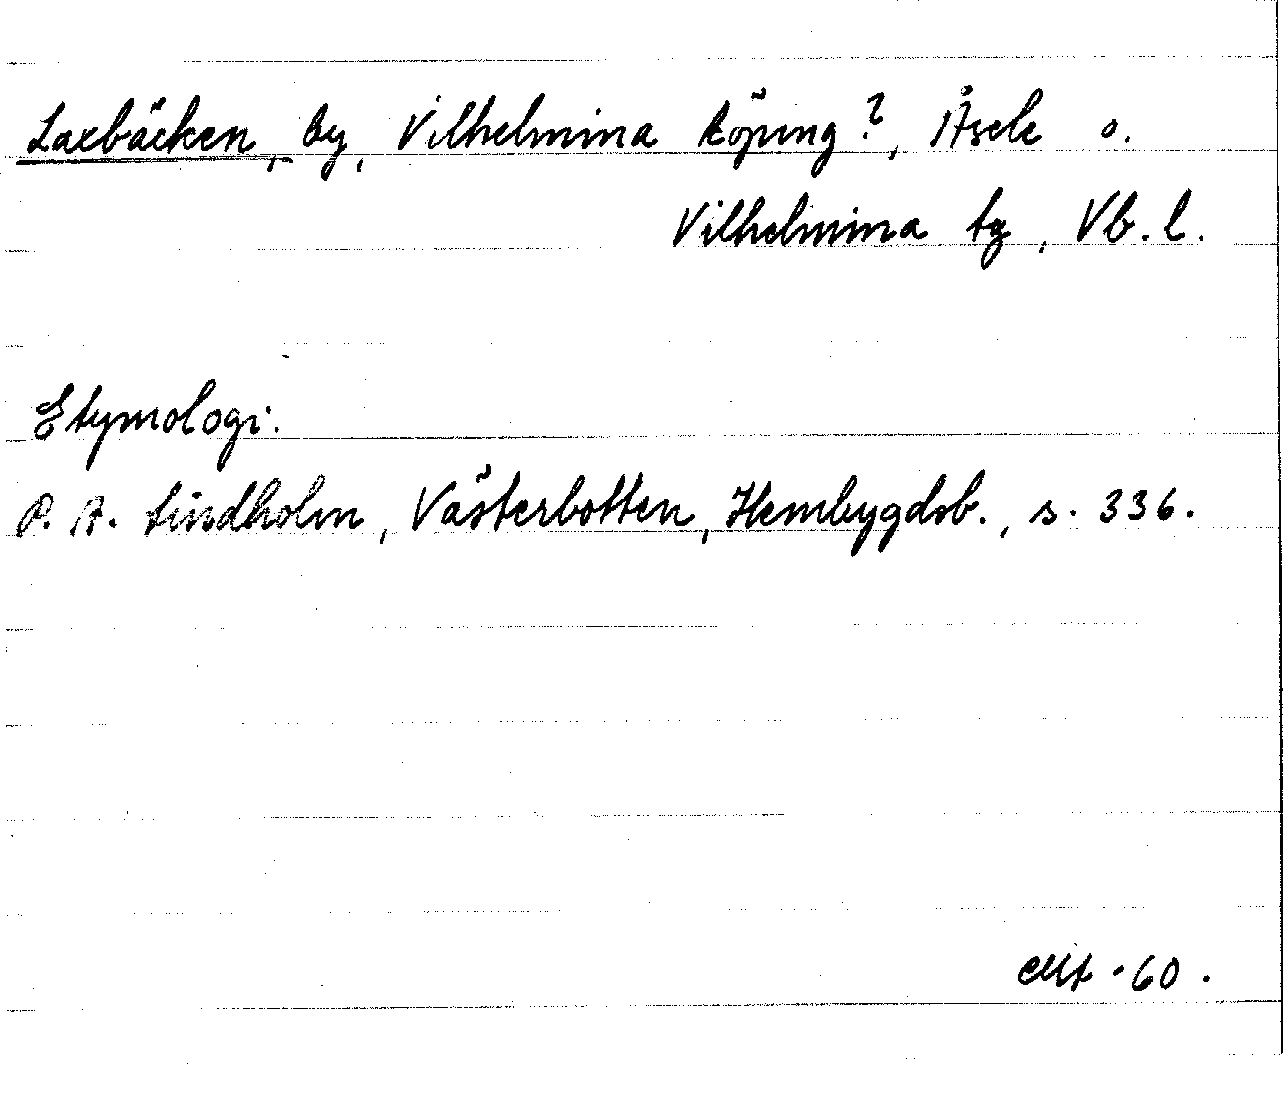 Laxbäcken, by, Vilhelmina köping?, Åsele o.
Vilhelmina tg, Vb. l.
Etymologi:
P. A. Lindholm, Västerbotten, Hembygdsb., s. 336.
-60.